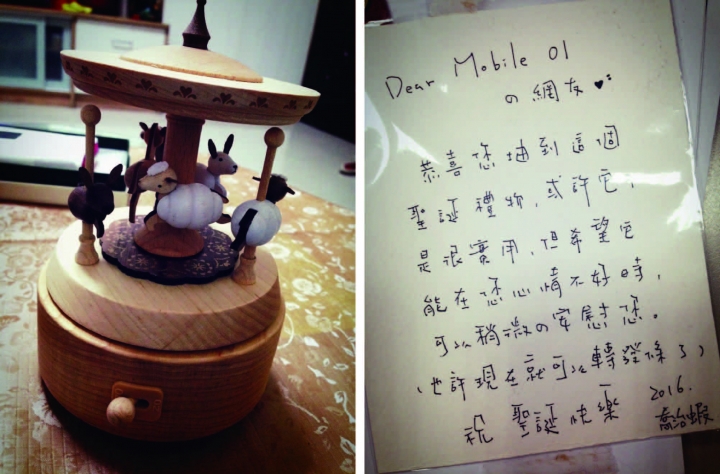 Dear Mobile 01
の網友♥
恭喜您抽到這個
聖誕禮物,或許它,
是很實用,但希望它
能在您心情不好時,
可以稍微の安慰您。
(也許現在就可以轉發條了)
祝 聖誕快樂
2016.
喬治蝦